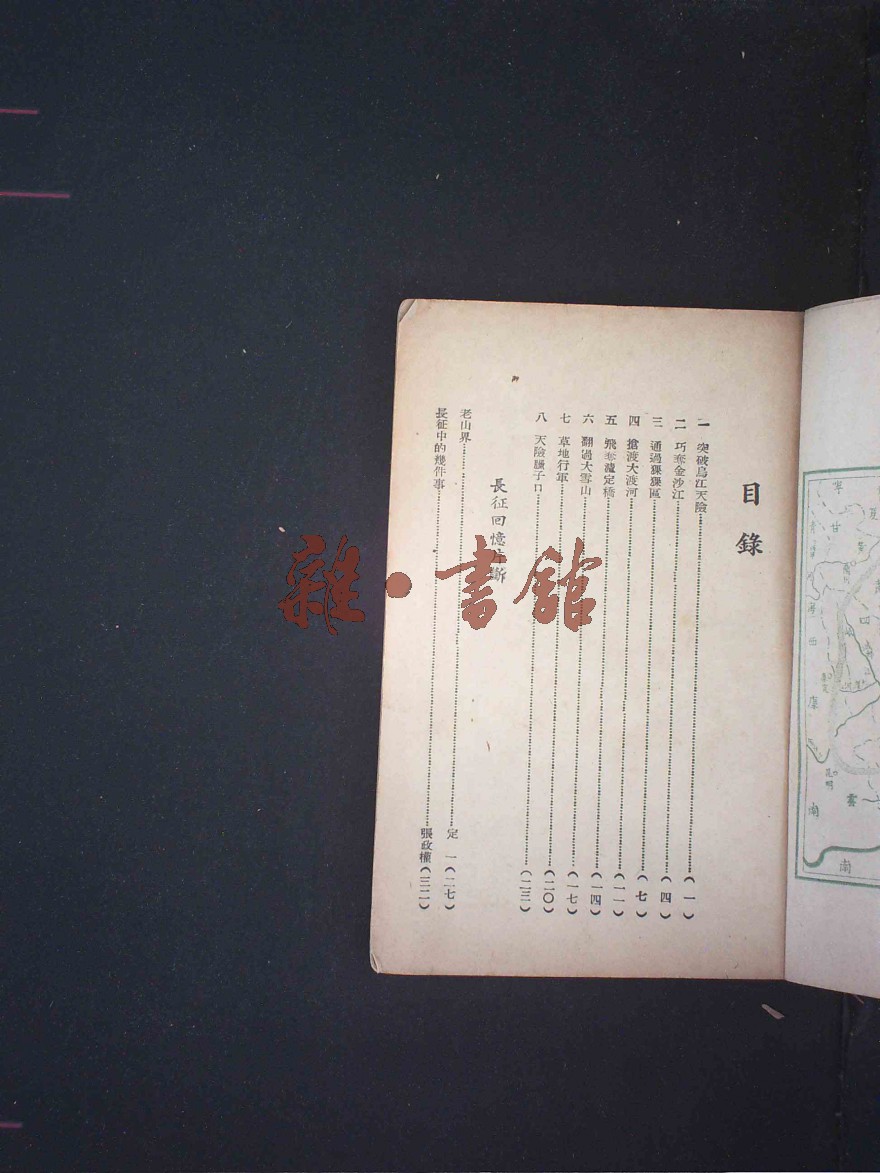 目錄
一 突破烏江天險(一)
二 巧奪金沙江(四)
三 通過猓猓區(七)
四 搶渡大渡河(一一)
五 飛奪瀘定橋(一四)
六 翻過大雪山(一七)
七 草地行軍(二〇)
八 天險臘子口(二三)
長征回憶片斷
老山界 定一(二七)
長征中的幾件事 張政權(三二)
雜·書館
寧
夏
甘
青
四
西
康
雲
南
昆明